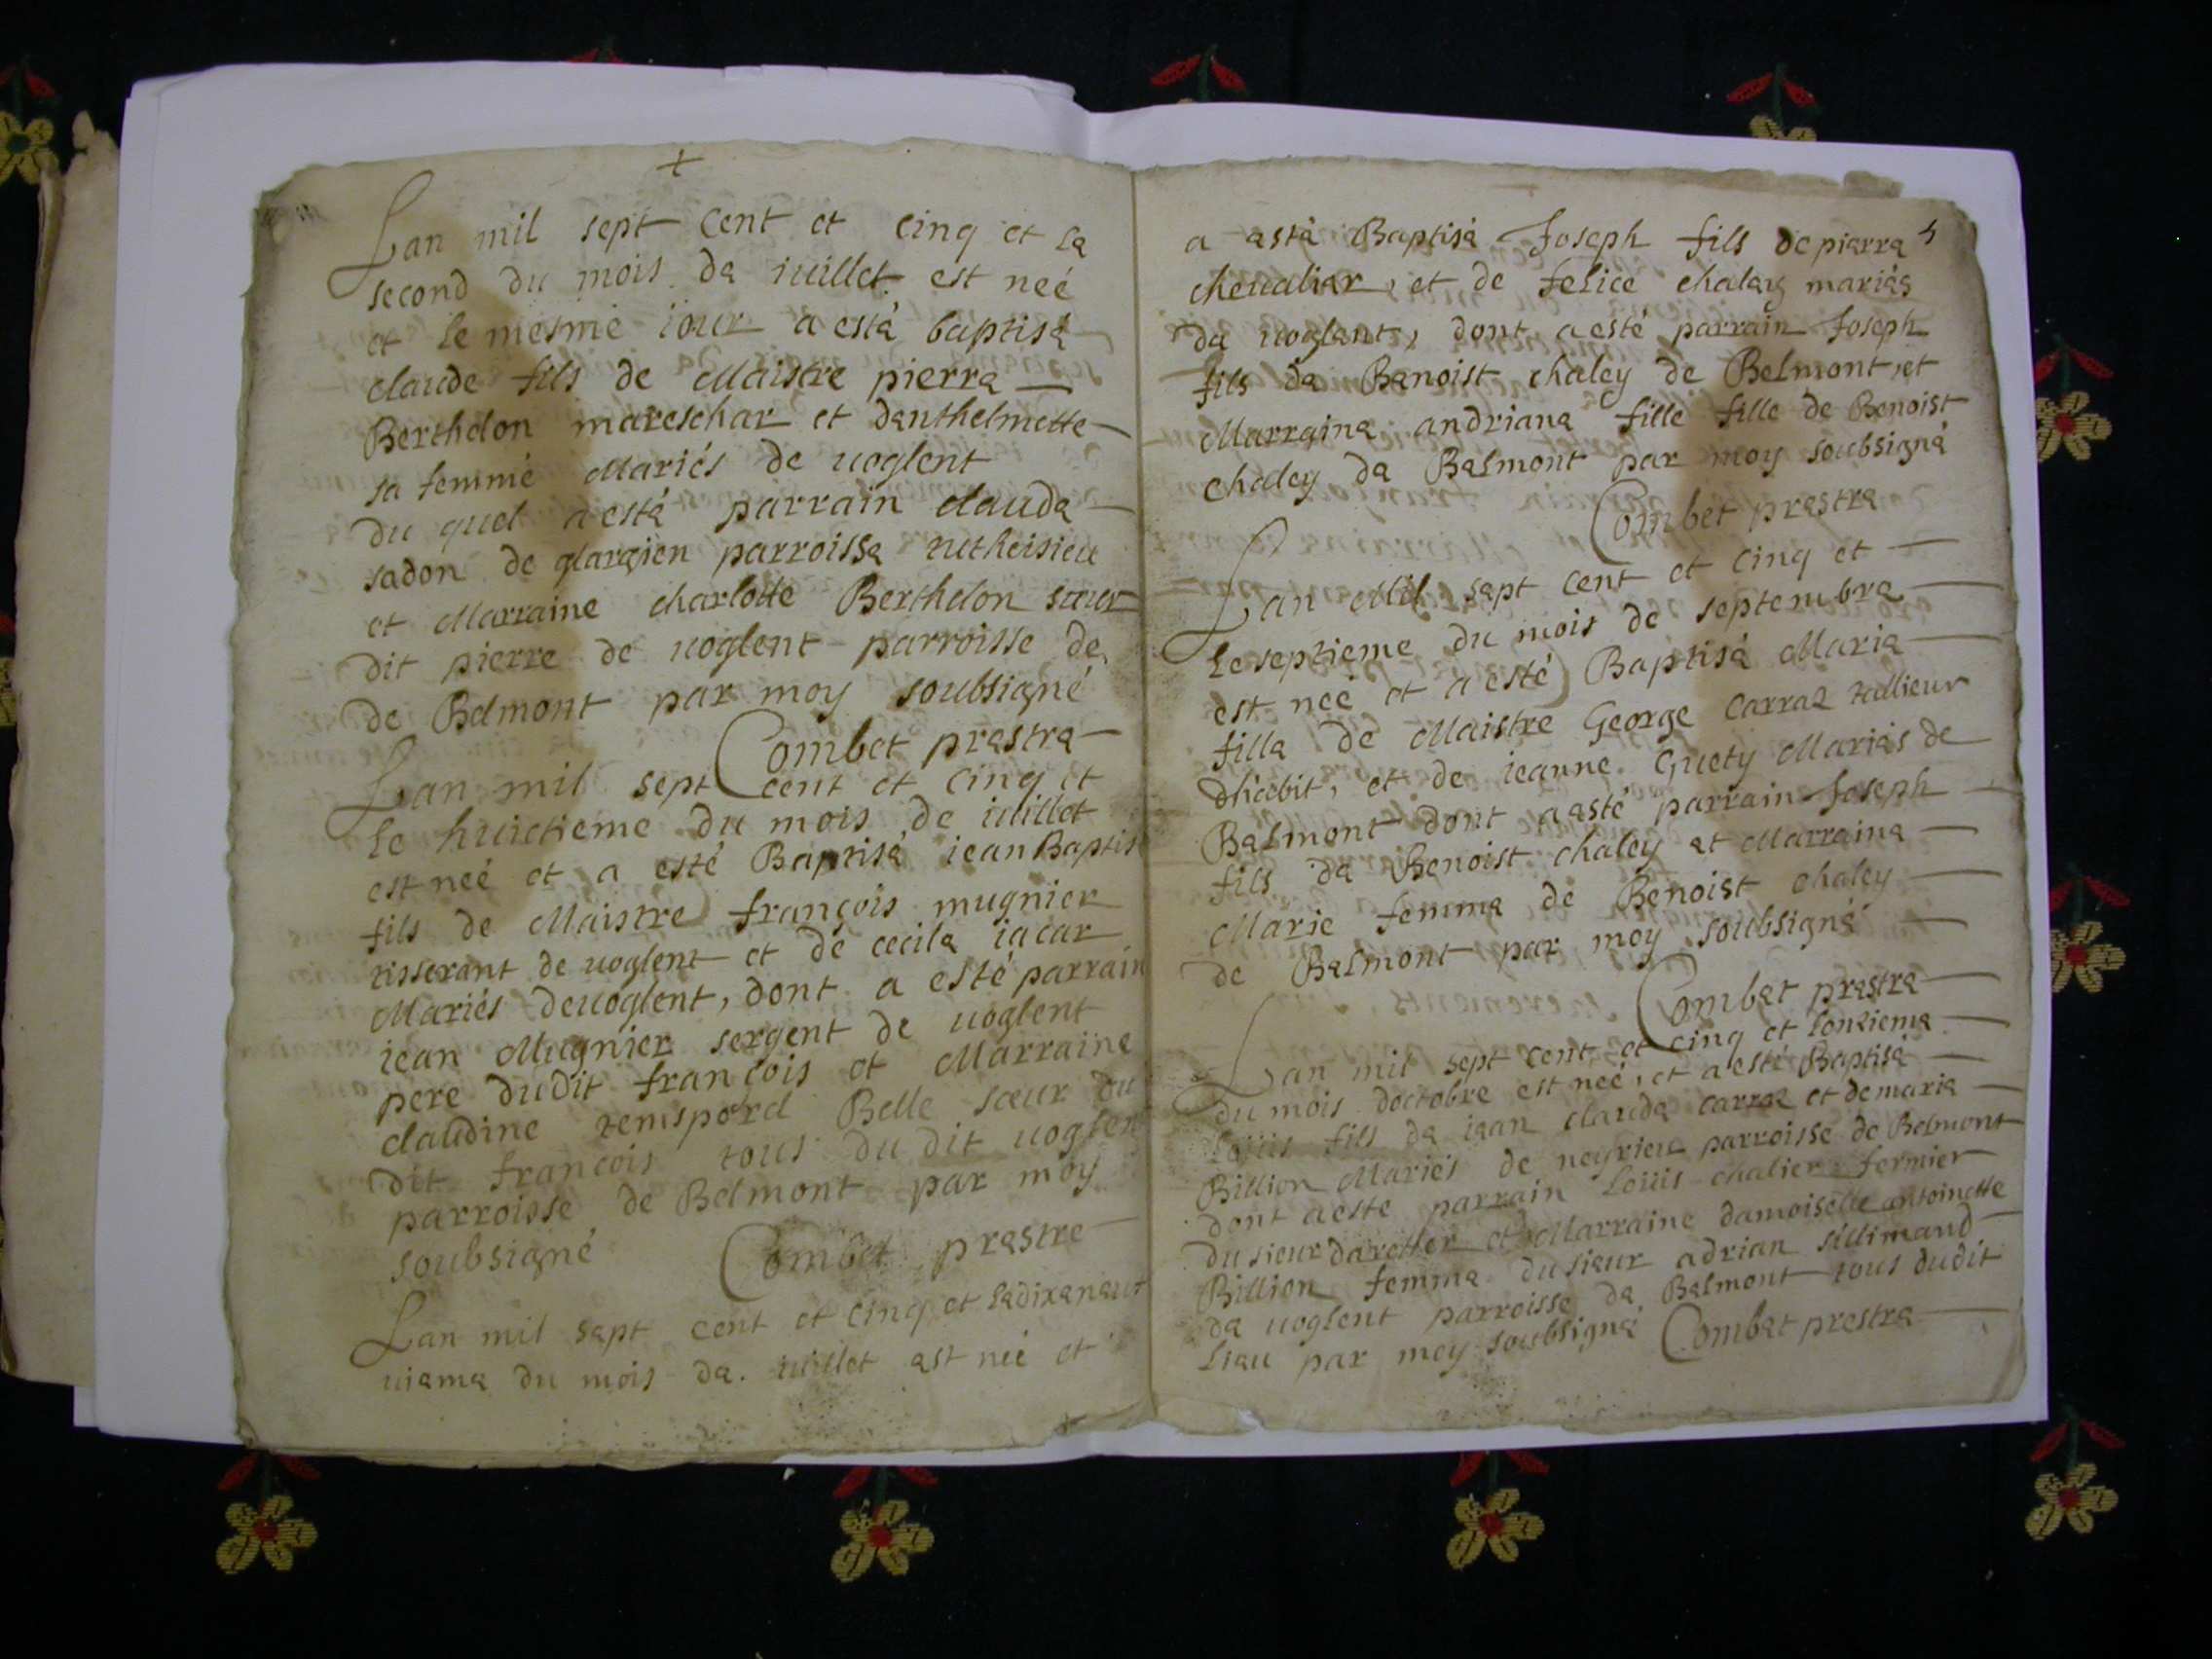 Lan mil sept cent et cinq et la
second du mois da iuillet est neé
et le mesme iour a está baptisá
claude fils de Maistre pierra
Berthelon mareschar et danthelmette
sa femme Mariés de uoglent
du quel a está parrain clauda
sadon de glargien parroissa rutheisieu
et Marraine charlotte Berthelon sœur
dit pierre de uoglent parroisse de
de Belmont par moy soubsigné
Combet prastra
Lan mil sept cent et cinq et
le huictieme du mois de iuillet
est neé et a esté Baptisé iean Baptis
fils de Maistre françois mugnier
tisserant de uoglent et de cecila iacar
Mariés deuoglent, dont a esté parrain
iean Mugnier sergent de uoglent
pere dudit francois et Marraine
claudine temsporel Belle sœur du
dit francois tous du dit uoglen
parroisse de Belmont par moy
soubsigné Combet prastre
Lan mil sapt cent et cinq et ladixanau
uiama du mois da iuillet ast neé et
a astá Baptisá Joseph fils de piarra 4
cheualiar, et de felice chalay mariás
da uoglant, dont a esté parrain Joseph
fils da Banoist chaley de Belmont, et
Marraina andriana fille fille de Benoist
chaley da Balmont par moy soubsigná
Combet prastra
Lan Mil sapt cent et cinq et
le septieme du mois de septembra
est neé et a esté Baptisá Maria
filla de Maistre George carraz tallieur
dhabit, et de ieanne Guety Mariás de
Balmont dont a asté parrain Joseph
fils da Benoist chaley at Marraina
Marie femma de Benoist chaley
de Balmont par moy soubsigná
Combat prastra
Lan mil sept cent et cinq et lonziema
du mois doctobre est neé, et a esté Baptisé
Loüis fils da iaan clauda carraz et de maria
Billion Mariés de neyrieu parroisse de Belmont
dont a esté parrain Loüis chalier fermier
du sieur et Marraine damoiselle antoinette
Billion femma du siaur adrian sillimand
da uoglent parroisse da Balmont tous dudit
liau par moy soubsigná Combat prestra